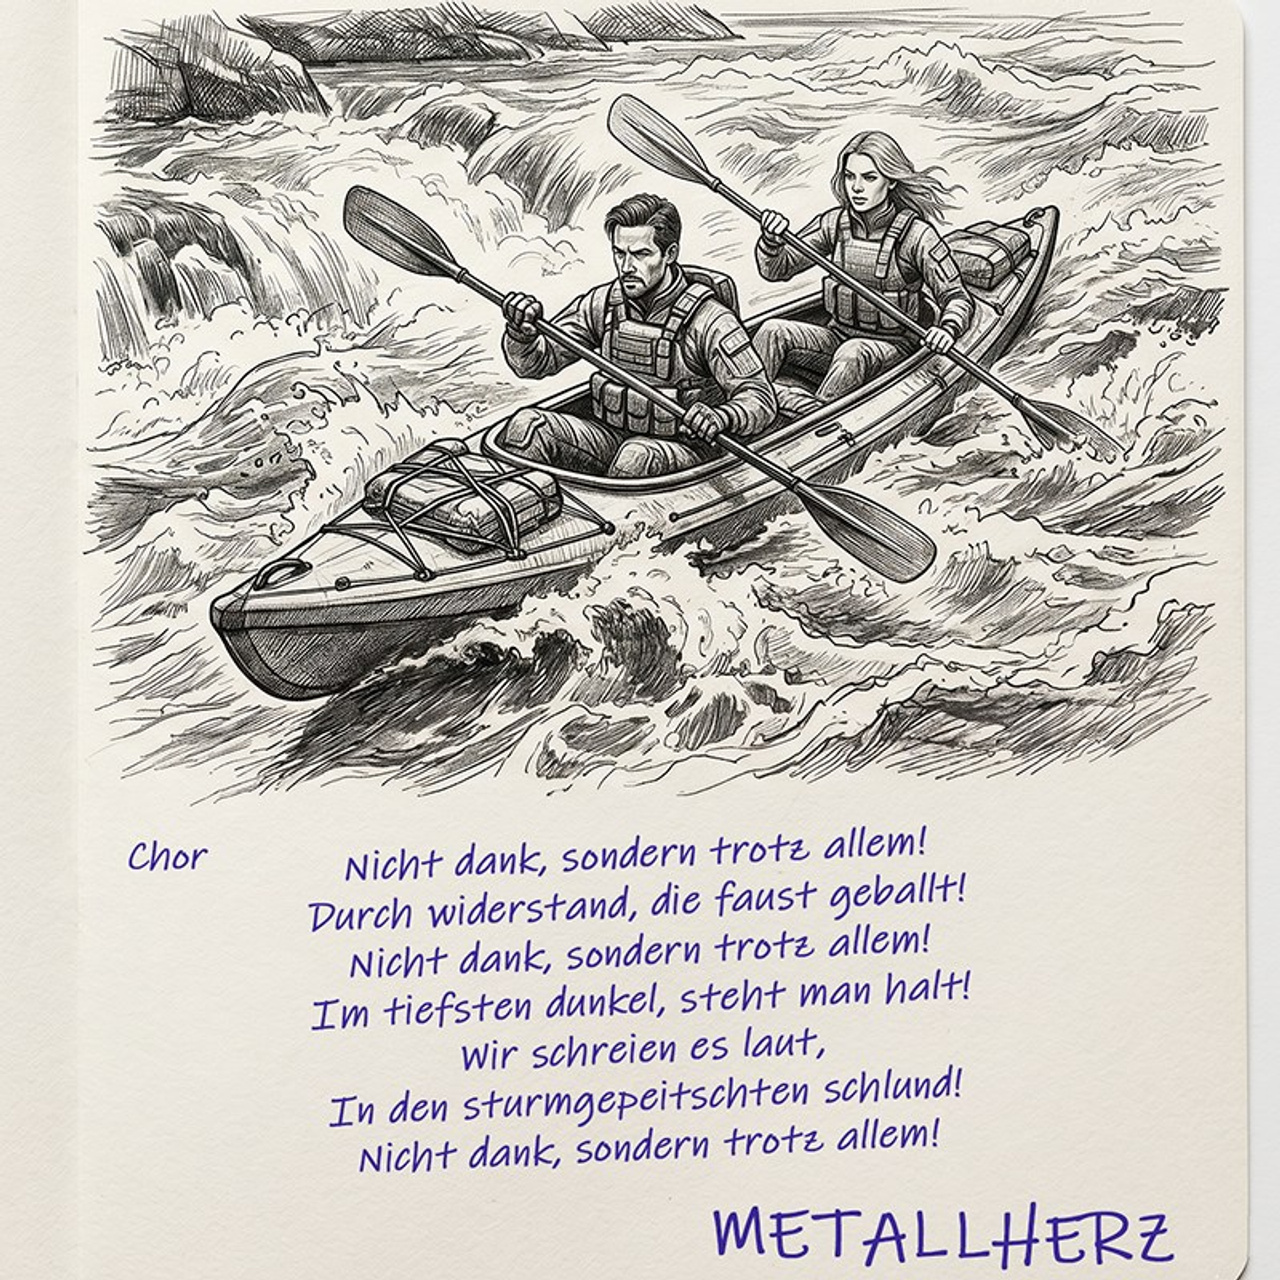 Chor
Nicht dank, sondern trotz allem!
Durch widerstand, die faust geballt!
Nicht dank, sondern trotz allem!
Im tiefsten dunkel, steht man halt!
Wir schreien es laut,
In den sturmgepeitschten schlund!
Nicht dank, sondern trotz allem!
METALLHERZ